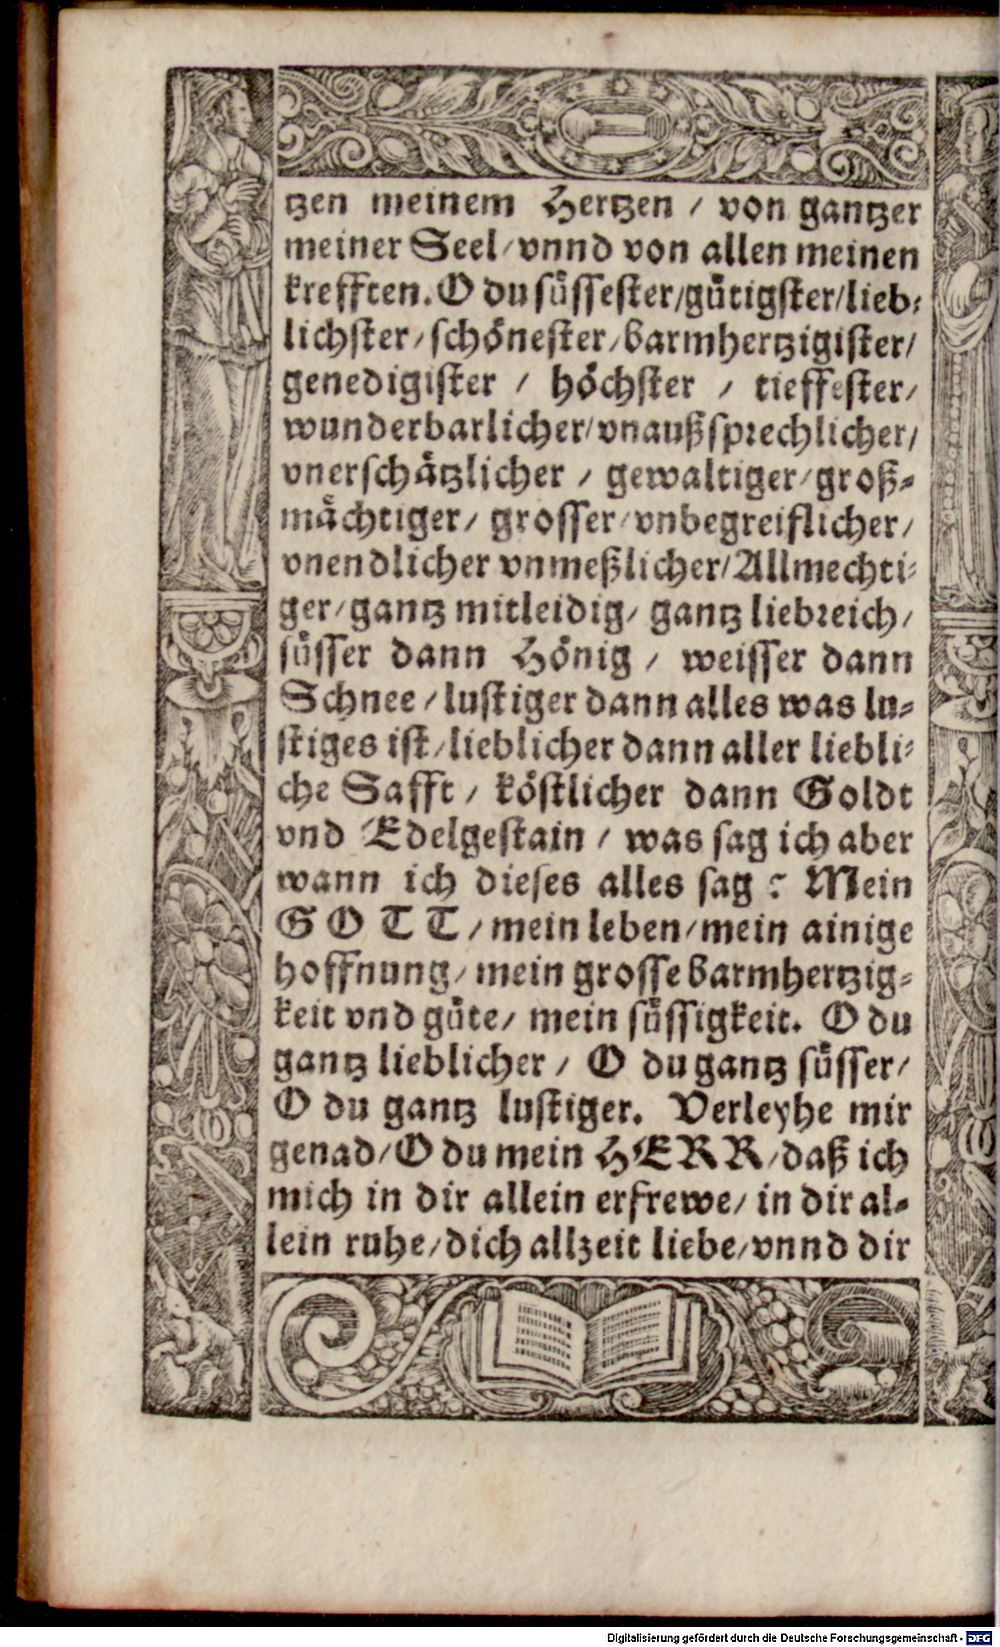 tzen meinem Hertzen / von gantzer
meiner Seel / vnnd von allen meinen
krefften. O du süssester / gütigster / lieb⸗
lichster / schönester / barmhertzigister /
genedigister / höchster / tieffester /
wunderbarlicher / vnaußsprechlicher /
vnerschätzlicher / gewaltiger / groß⸗
mächtiger / grosser / vnbegreiflicher /
vnendlicher vnmeßlicher / Allmechti⸗
ger / gantz mitleidig / gantz liebreich /
süsser dann Hönig / weisser dann
Schnee / lustiger dann alles was lu⸗
stiges ist / lieblicher dann aller liebli⸗
che Safft / köstlicher dann Goldt
vnd Edelgestain / was sag ich aber
wann ich dieses alles sag? Mein
GOTT / mein leben / mein ainige
hoffnung / mein grosse barmhertzig⸗
keit vnd güte / mein süssigkeit. O du
gantz lieblicher / O du gantz süsser /
O du gantz lustiger. Verleyhe mir
genad / O du mein HERR / daß ich
mich in dir allein erfrewe / in dir al⸗
lein ruhe / dich allzeit liebe / vnnd dir
Digitalisierung gefördert durch die Deutsche Forschungsgemeinschaft - DFG